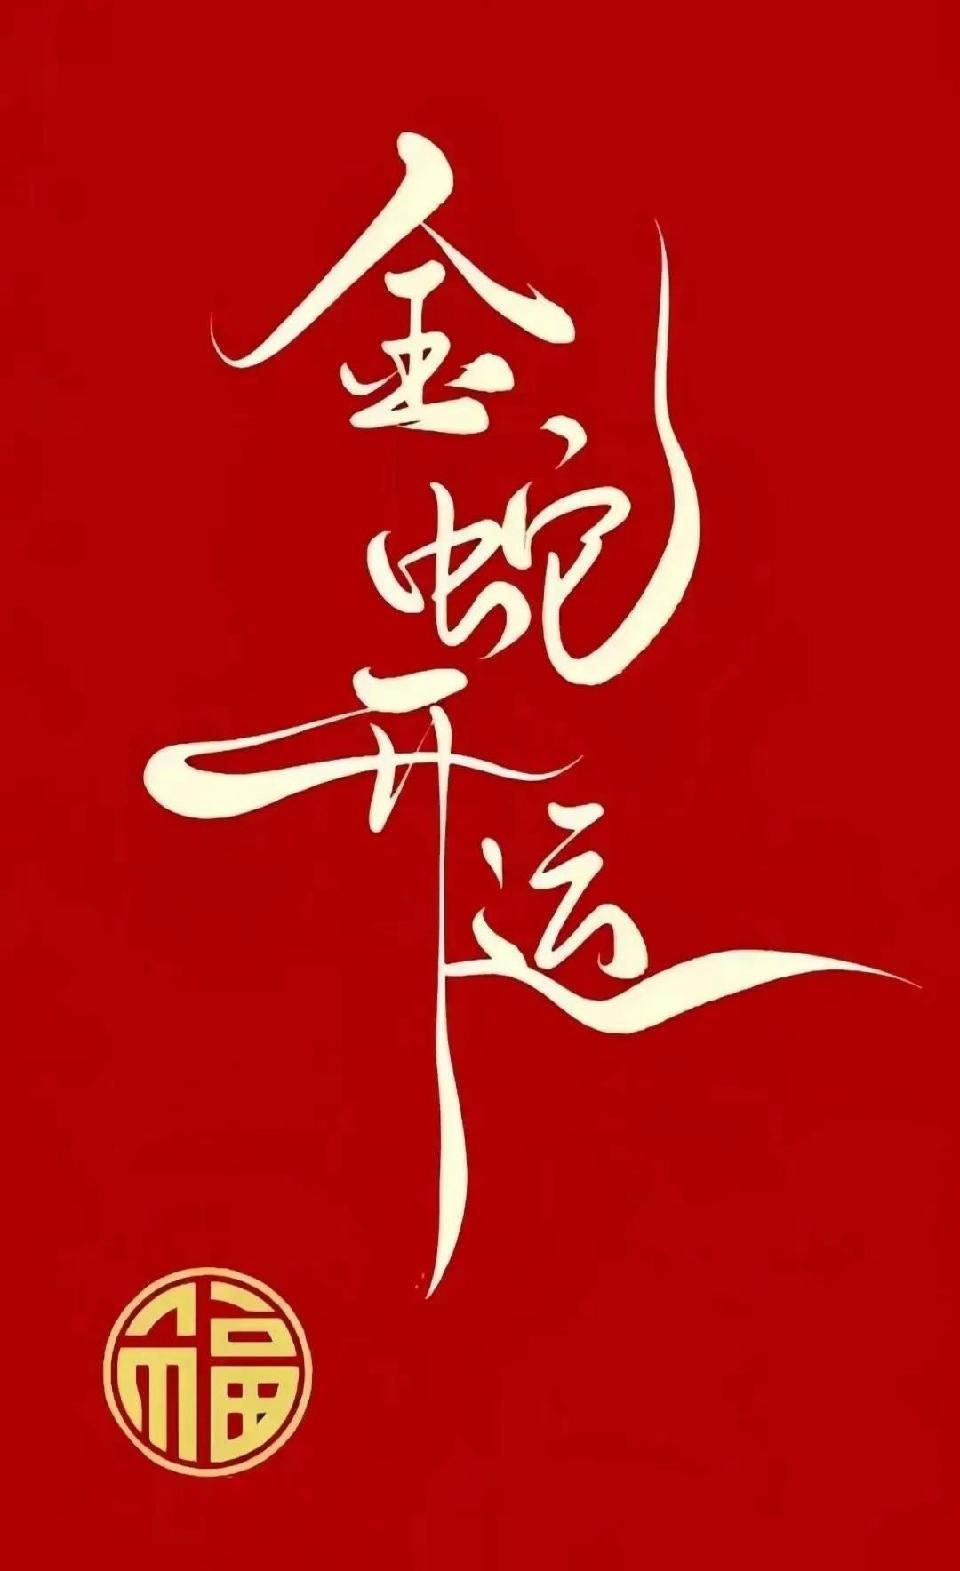 金蛇开运
福